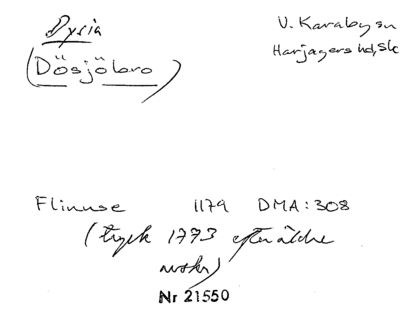 Dysia
(Dösjöbro)
V. Karaby sn
Harjagers hd, Sk
Flinnse 1179 DMA: 308
(tryck 1773 efter äldre
avskr)
Nr 21550